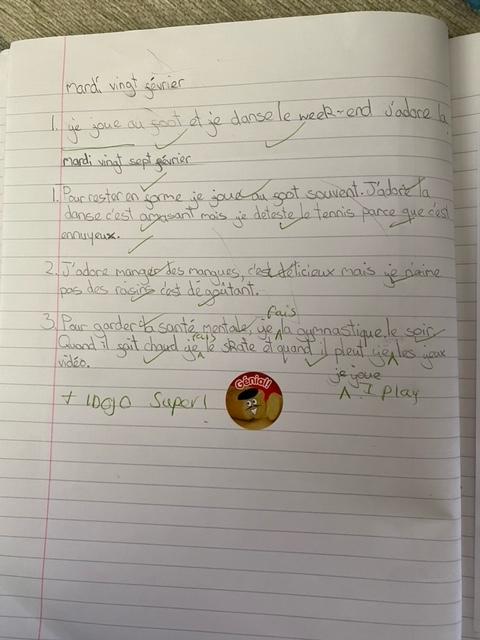 mardi vingt février
1. je joue au foot et je danse le week-end J'adore la
mardi vingt sept février
1. Pour rester en forme je joue au foot souvent. J'adore la
danse c'est amasant mais je deteste le tennis parce que c'est
ennuyeux.
2. J'adore manger des mangues, c'est délicieux mais je n'aime
pas des raisins c'est dégoûtant.
fais
3. Pour garder la santé mentale, je la gymnastique le soir.
fais
Quand il fait chaud je le skate et quand il pleut je les jeux
vidéo.
je joue
+ 1DOJO Super!
Génial!
I play